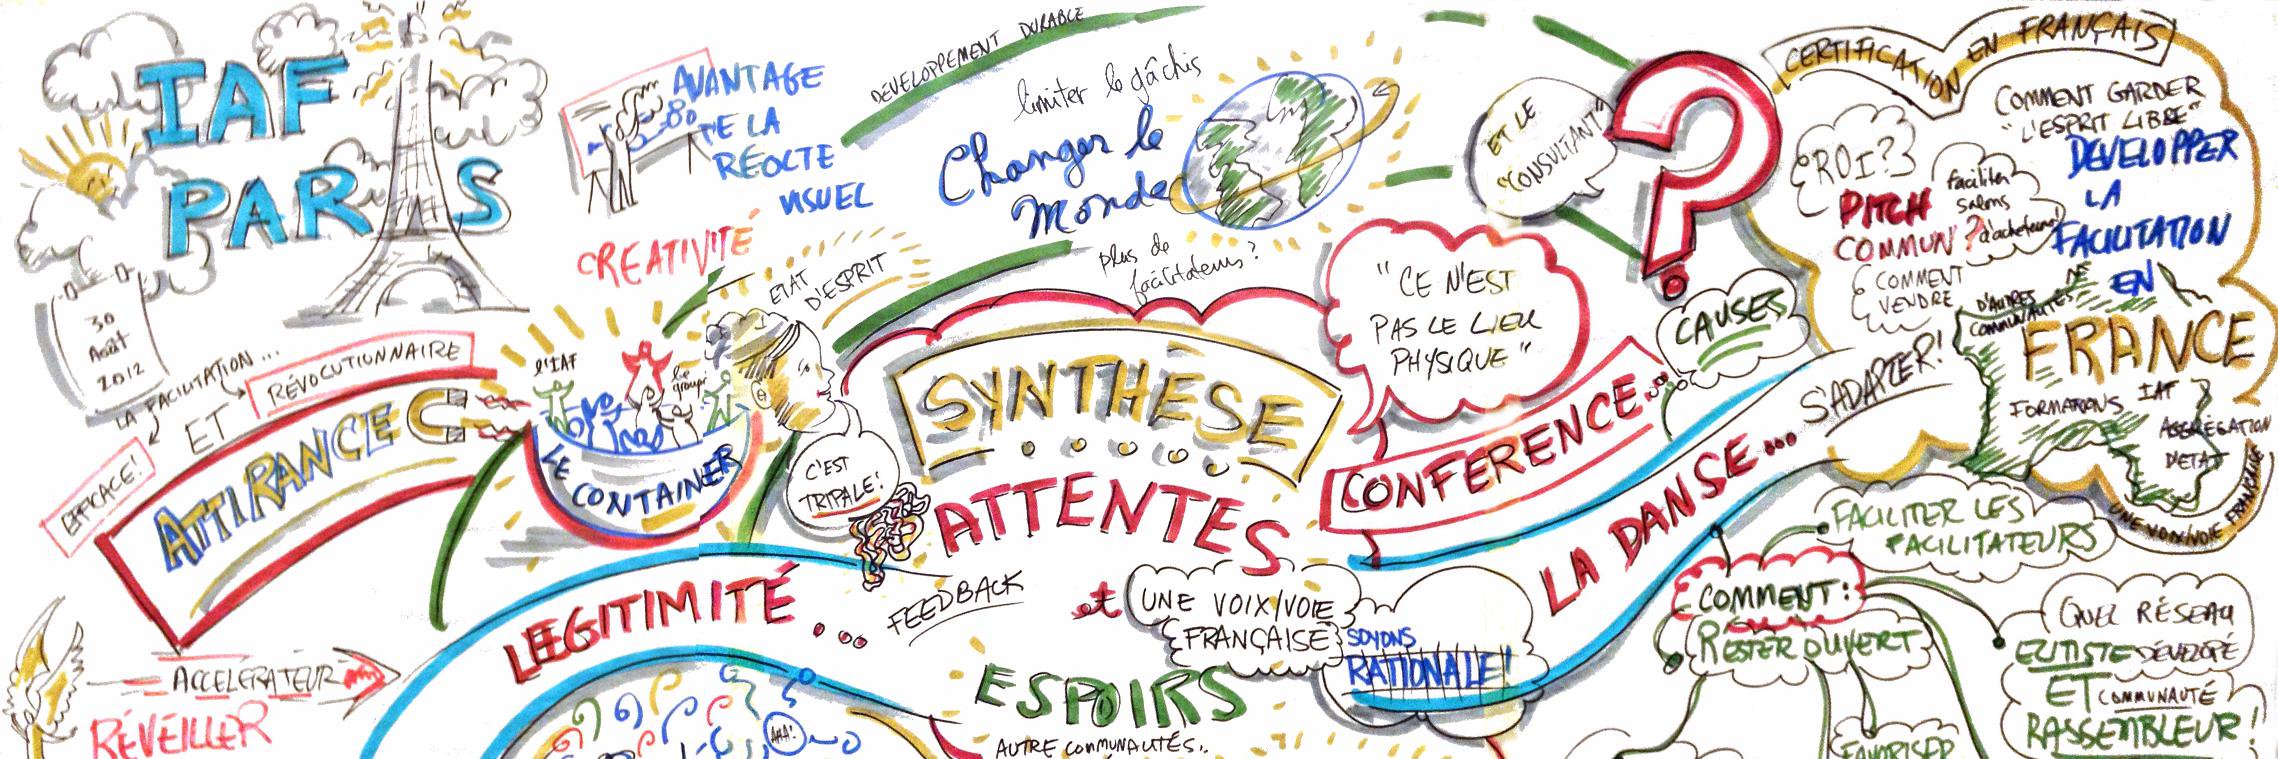 IAF
PARIS
30
Août
2012
AVANTAGE
DE LA
RÉOCTE
VISUEL
CREATIVITÉ
DÉVELOPPEMENT DURABLE
limiter le gâchis
Changer le
Monde
plus de
facilitateurs?
ETAT
D'ESPRIT
ET LE
"CONSULTANT"
?
CERTIFICATION EN FRANÇAIS
COMMENT GARDER
"L'ESPRIT LIBRE"
DEVELOPPER
LA
FACILITATION
EN
FRANCE
ROI?
PITCH
COMMUN?
faciliter
salons
d'acheteurs
COMMENT
VENDRE
DES
D'AUTRES
COMMUNAUTÉS
FORMATIONS IAF
AGGRÉGATION
D'ETAT
UNE VOIX/VOIE FRANÇAISE
LA FACILITATION ...
RÉVOLUTIONNAIRE
ET
EFFICACE!
ATTIRANCE
l'IAF
le
groupe
LE CONTAINER
C'EST
TRIPALE!
SYNTHÈSE
ATTENTES
et
ESPOIRS
AUTRE COMMUNAUTÉS..
"CE N'EST
PAS LE LIEU
PHYSIQUE"
CONFERENCE...
CAUSES
LA DANSE...
S'ADAPTER!
LEGITIMITÉ...
FEEDBACK
UNE VOIX/VOIE
FRANÇAISE
SOYONS
RATIONALE!
ACCELÉRATEUR
RÉVEILLER
AHA!
FACILITER LES
FACILITATEURS
COMMENT:
RESTER OUVERT
QUEL RÉSEAU
ELITISTE DÉVELOPÉ
ET COMMUNAUTÉ
RASSEMBLEUR!
FAVORISER